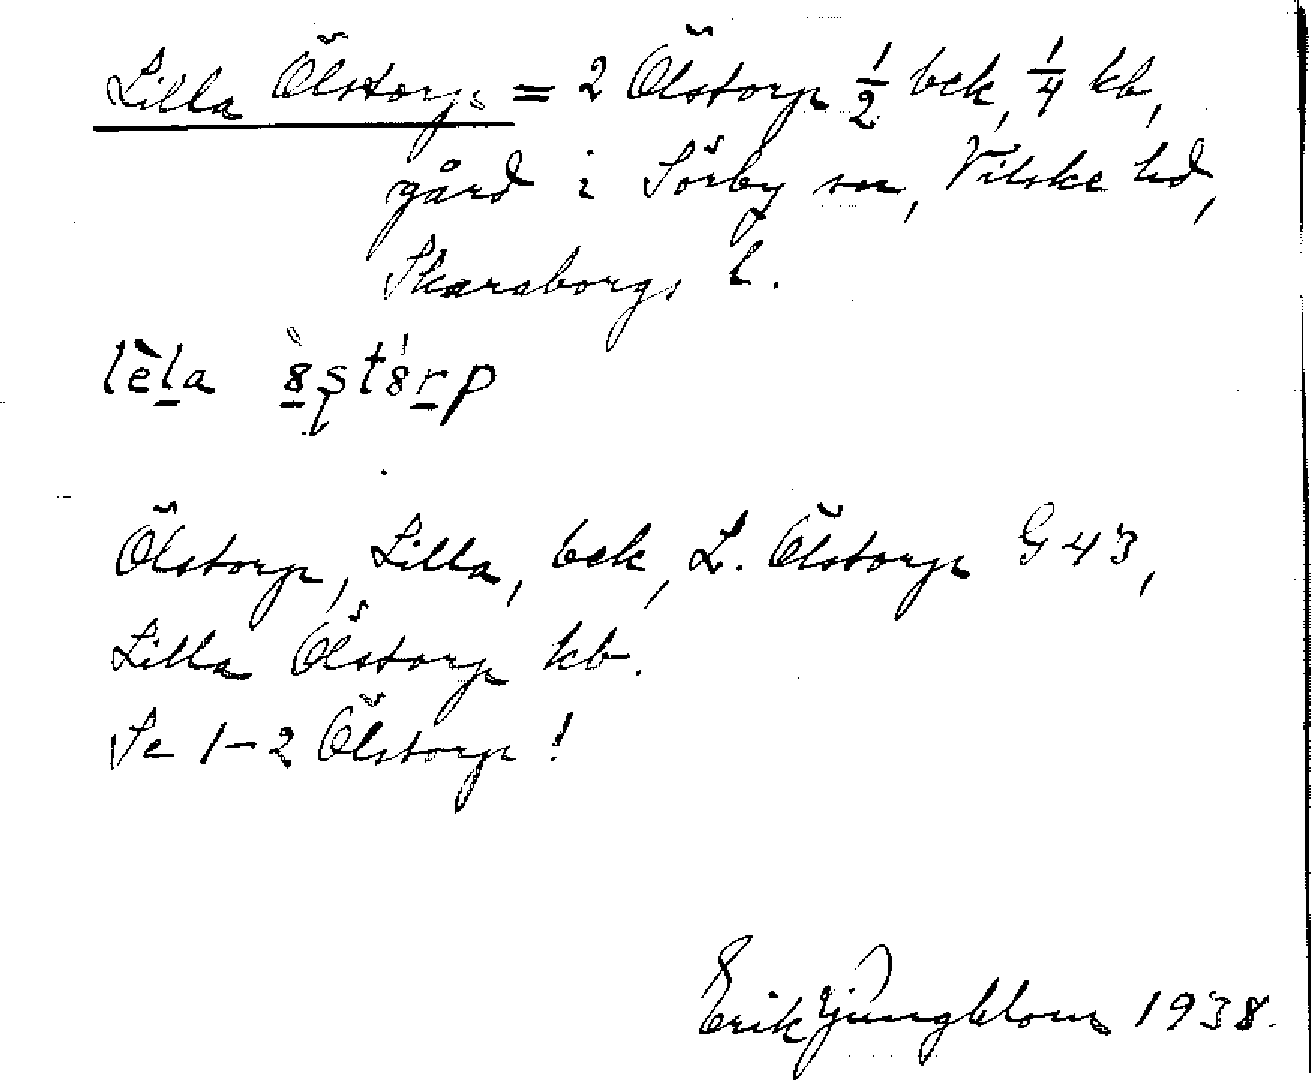 Lilla Ölstorp = 2 Ölstorp 1/2 bek, 1/4 kb,
gård i Sörby sn, Vilske hd,
Skaraborgs l.
Ölstorp, Lilla, bek, L. Ölstorp G 43,
Lilla Ölstorp kb.
Se 1-2 Ölstorp!
Erik Ljungblom 1938.